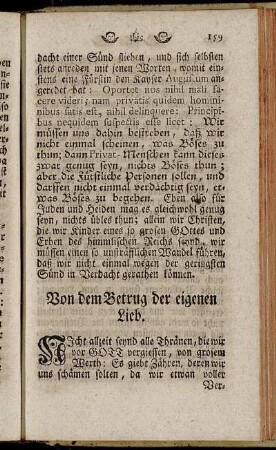 159
dacht einer Sünd fliehen, und sich selbsten
stets anreden mit jenen Worten, womit ein-
stens eine Fürstin den Kayser Augustum an-
geredet hat: Oportet nos nihil mali fa-
cere videri; nam privatis quidem homini-
nibus satis est, nihil delinquere: Principi-
bus nequidem suspectis esse licet: Wir
müssen uns dahin bestreben, daß wir
nicht einmal scheinen, was Böses zu
thun; dann Privat-Menschen kann dieses
zwar genug seyn, nichts Böses thun;
aber die Fürstliche Personen sollen, und
darffen nicht einmal verdächtig seyn, et-
was Böses zu begehen. Eben also für
Juden und Heiden mag es gleichwohl genug
seyn, nichts übles thun; allein wir Christen,
die wir Kinder eines so grosen GOttes und
Erben des himmlischen Reichs seynd, wir
müssen einen so unsträfflichen Wandel führen,
daß wir nicht einmal wegen der geringsten
Sünd in Verdacht gerathen können.
Von dem Betrug der eigenen
Lieb.
NIcht allzeit seynd alle Thränen, die wir
vor GOTT vergiessen, von grosem
Werth: Es giebt Zähren, deren wir
uns schämen solten, da wir etwan voller
Ver-